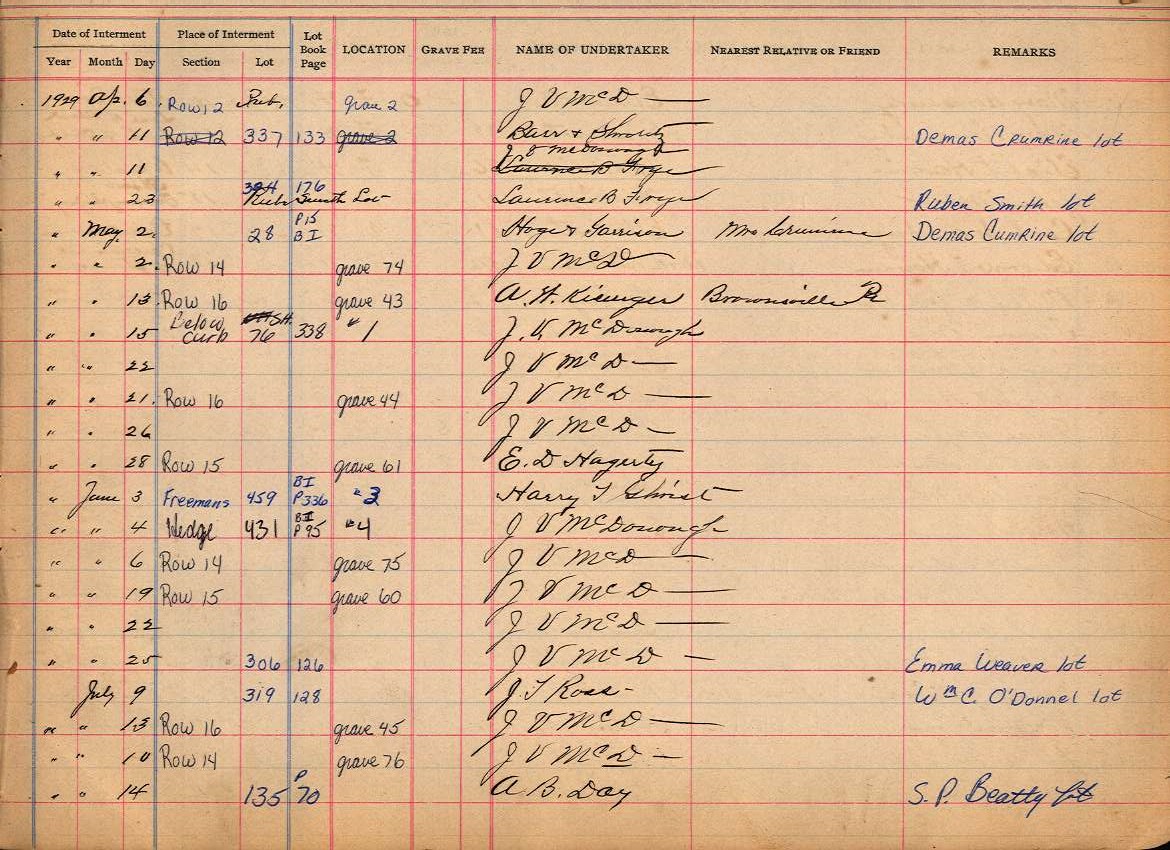 Date of Interment Place of Interment Lot Book Page LOCATION GRAVE FEE NAME OF UNDERTAKER NEAREST RELATIVE OR FRIEND REMARKS
Year Month Day Section Lot
1929 Ap. 6 Row 12 Pub. grave 2 J V McD —
" " 11 Row 12 337 133 grave 2 Barr & Demas Crumrine lot
J V McDonough
" " 11 Laurence B Frye
394 176
" " 23 Rub Smith Lot Laurence B Frye Ruben Smith lot
" May 2 28 P15 B I Hoge & Garrison Mrs Crumrine Demas Cumrine lot
" " 2. Row 14 grave 74 J V McD
" " 13 Row 16 grave 43 A. H. Brownsville Pa
" " 15 Below curb SH. 76 338 " 1 J. V. McDonough
" " 22 J V McD —
" " 21. Row 16 grave 44 J V McD —
" " 26 J V McD —
" " 28 Row 15 grave 61 E. D Hagerty
" June 3 Freemans 459 B I P336 " 3 Harry T
" " 4 Wedge 431 B I P 95 " 4 J V McDonough
" " 6 Row 14 grave 75 J V McD —
" " 19 Row 15 grave 60 J V McD —
" " 22 J V McD —
" " 25 306 126 J V McD — Emma Weaver lot
July 9 319 128 J. T Ross - Wm C. O'Donnel lot
" " 13 Row 16 grave 45 J V McD —
" " 10 Row 14 grave 76 J V McD —
" " 14 135 P 70 A B. Day S. P. Beatty lot